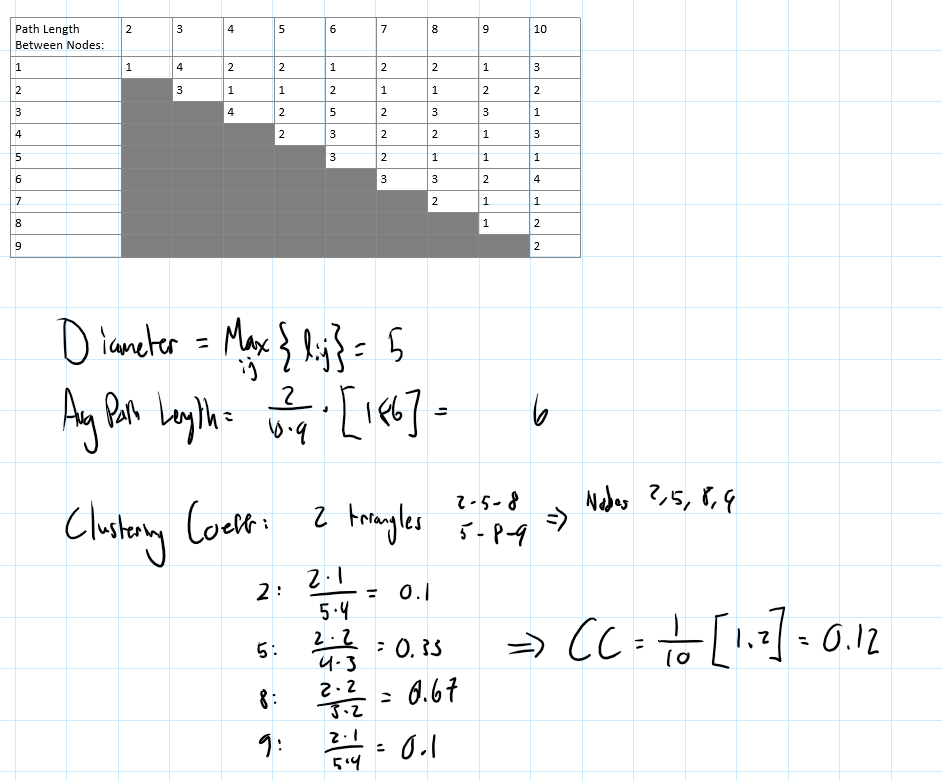 Path Length Between Nodes: 2 3 4 5 6 7 8 9 10
1 1 4 2 2 1 2 2 1 3
2 3 1 1 2 1 1 2 2
3 4 2 5 2 3 3 1
4 2 3 2 2 1 3
5 3 2 1 1 1
6 3 3 2 4
7 2 1 1
8 1 2
9 2
Diameter = Max ij {lij} = 5
Avg Path Length = 2/10·9 · [186] = 6
Clustering Coeff: 2 triangles 2-5-8 5-8-9 => Nodes 2,5,8,9
2: 2·1/5·4 = 0.1
5: 2·2/4·3 = 0.33 => CC = 1/10 [1.2] = 0.12
8: 2·2/3·2 = 0.67
9: 2·1/5·4 = 0.1